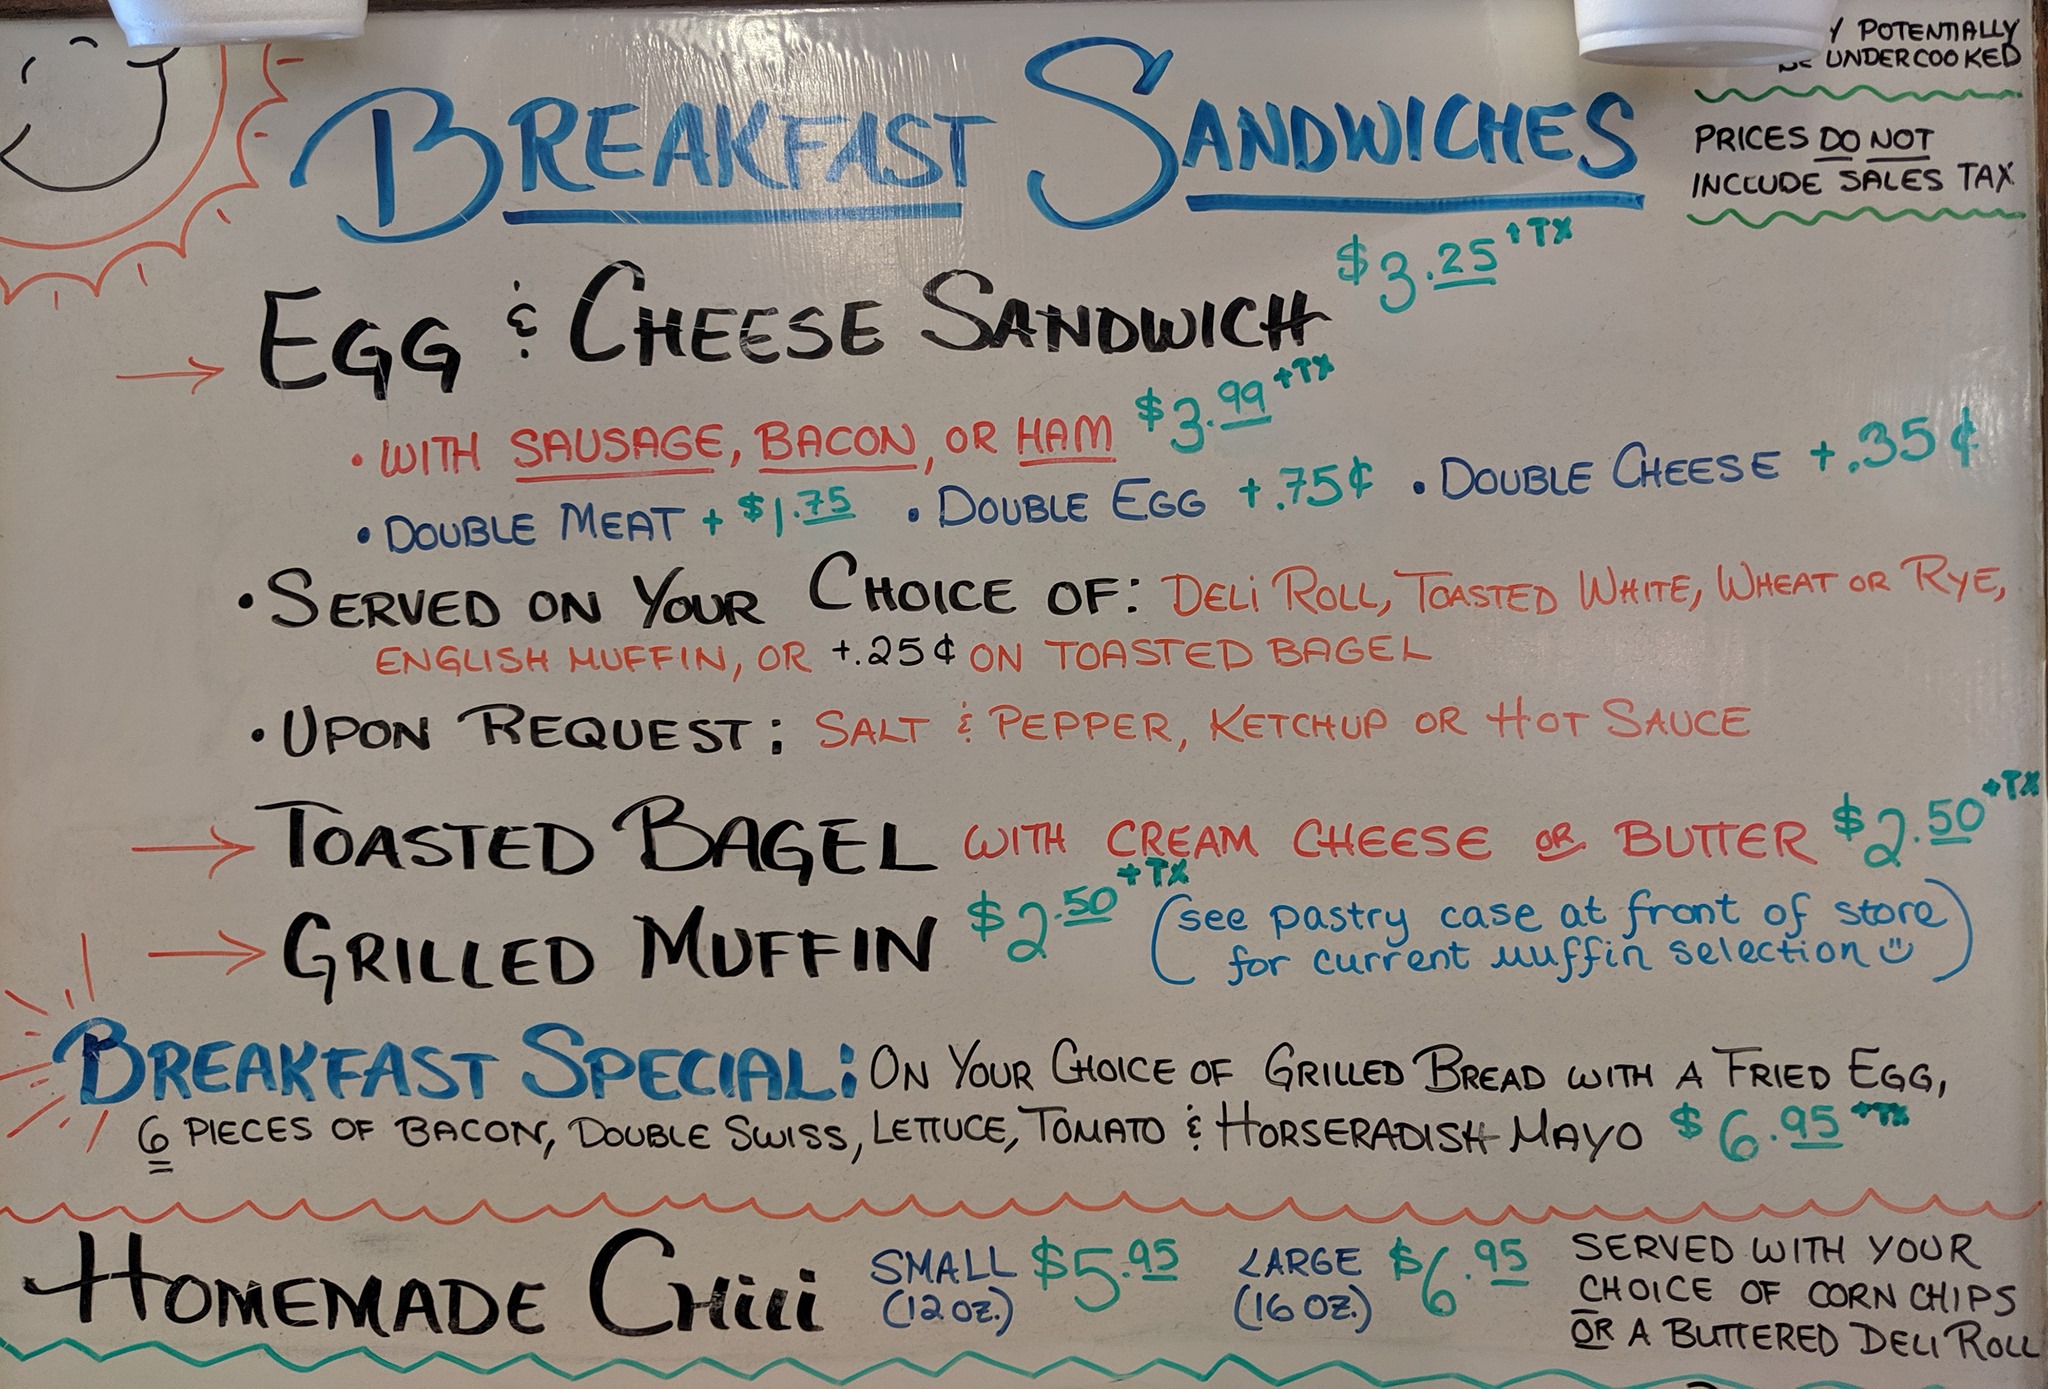 Y POTENTIALLY
BE UNDERCOOKED
PRICES DO NOT
INCLUDE SALES TAX
BREAKFAST SANDWICHES
EGG & CHEESE SANDWICH $3.25 +TX
• WITH SAUSAGE, BACON, OR HAM $3.99 +TX
• DOUBLE MEAT + $1.75 • DOUBLE EGG +.75¢ • DOUBLE CHEESE +.35¢
• SERVED ON YOUR CHOICE OF: DELI ROLL, TOASTED WHITE, WHEAT OR RYE,
ENGLISH MUFFIN, OR +.25¢ ON TOASTED BAGEL
• UPON REQUEST: SALT & PEPPER, KETCHUP OR HOT SAUCE
TOASTED BAGEL WITH CREAM CHEESE OR BUTTER $2.50 +TX
GRILLED MUFFIN $2.50 +TX (see pastry case at front of store
for current muffin selection)
BREAKFAST SPECIAL: ON YOUR CHOICE OF GRILLED BREAD WITH A FRIED EGG,
6 PIECES OF BACON, DOUBLE SWISS, LETTUCE, TOMATO & HORSERADISH MAYO $6.95 +TX
HOMEMADE CHili SMALL (12 OZ.) $5.95 LARGE (16 OZ.) $6.95
SERVED WITH YOUR
CHOICE OF CORN CHIPS
OR A BUTTERED DELI ROLL